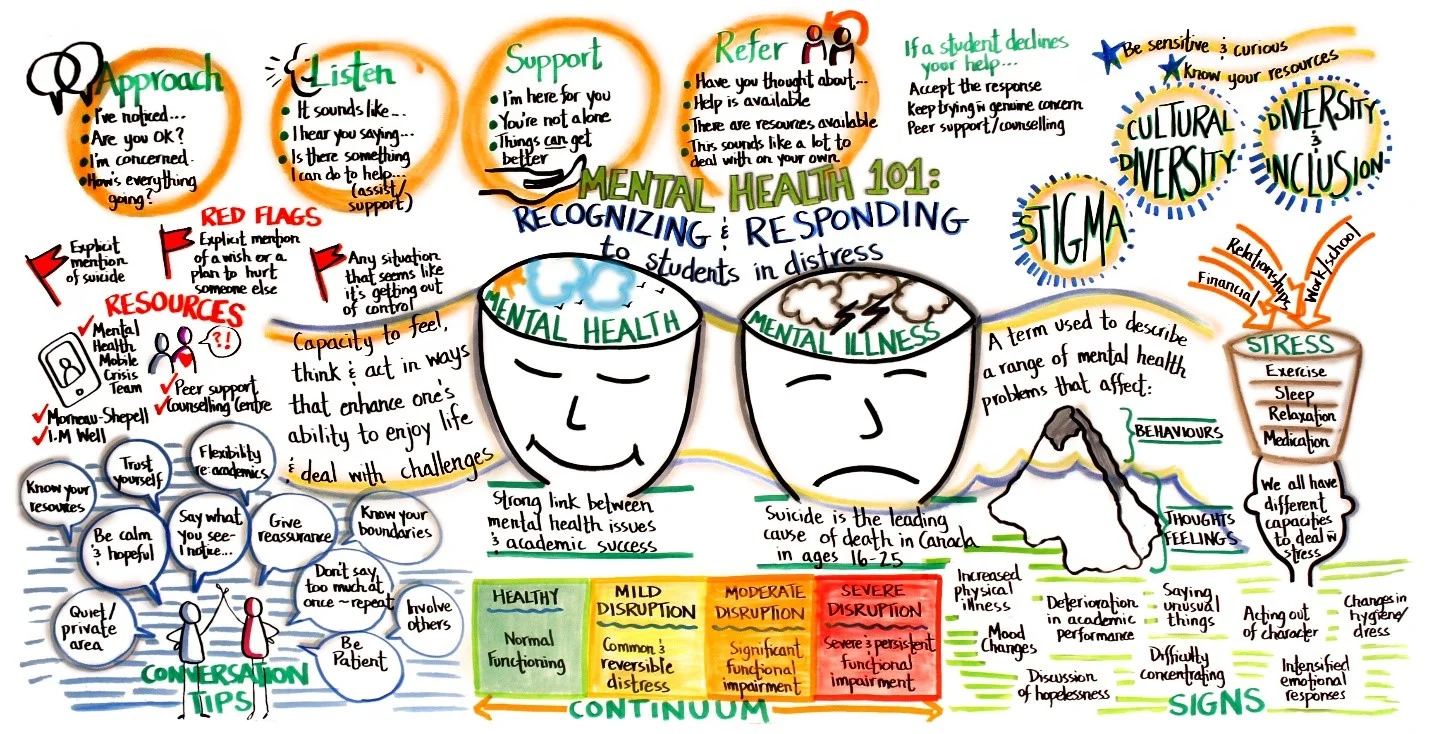 Approach
I've noticed...
Are you OK?
I'm concerned.
How's everything
going?
Listen
It sounds like...
I hear you saying...
Is there something
I can do to help...
(assist/
support)
Support
I'm here for you
You're not alone
Things can get
better
Refer
Have you thought about...
Help is available
There are resources available
This sounds like a lot to
deal with on your own.
If a student declines
your help...
Accept the response
Keep trying w genuine concern
Peer support/counselling
Be sensitive & curious
Know your resources
CULTURAL
DIVERSITY
DIVERSITY
&
INCLUSION
STIGMA
MENTAL HEALTH 101:
RECOGNIZING & RESPONDING
to students in distress
RED FLAGS
Explicit
mention
of suicide
Explicit mention
of a wish or a
plan to hurt
someone else
Any situation
that seems like
it's getting out
of control
RESOURCES
Mental
Health
Mobile
Crisis
Team
?!
Peer support
Counselling Centre
Morneau-Shepell
I.M Well
Capacity to feel,
think & act in ways
that enhance one's
ability to enjoy life
& deal with challenges
MENTAL HEALTH
Strong link between
mental health issues
& academic success
MENTAL ILLNESS
Suicide is the leading
cause of death in Canada
in ages 16-25
A term used to describe
a range of mental health
problems that affect:
BEHAVIOURS
THOUGHTS
FEELINGS
Financial
Relationships
Work/school
STRESS
Exercise
Sleep
Relaxation
Medication
We all have
different
capacities
to deal w
stress
Know your
resources
Trust
yourself
Flexibility
re: academics
Be calm
& hopeful
Say what
you see-
I notice...
Give
reassurance
Know your
boundaries
Quiet/
private
area
Don't say
too much at
once ~ repeat
Involve
others
Be
Patient
CONVERSATION
TIPS
HEALTHY
Normal
Functioning
MILD
DISRUPTION
Common &
reversible
distress
MODERATE
DISRUPTION
Significant
functional
impairment
SEVERE
DISRUPTION
Severe & persistent
functional
impairment
CONTINUUM
Increased
physical
illness
Mood
Changes
Deterioration
in academic
performance
Discussion
of hopelessness
Saying
unusual
things
Difficulty
concentrating
Acting out
of character
Changes in
hygiene/
dress
Intensified
emotional
responses
SIGNS